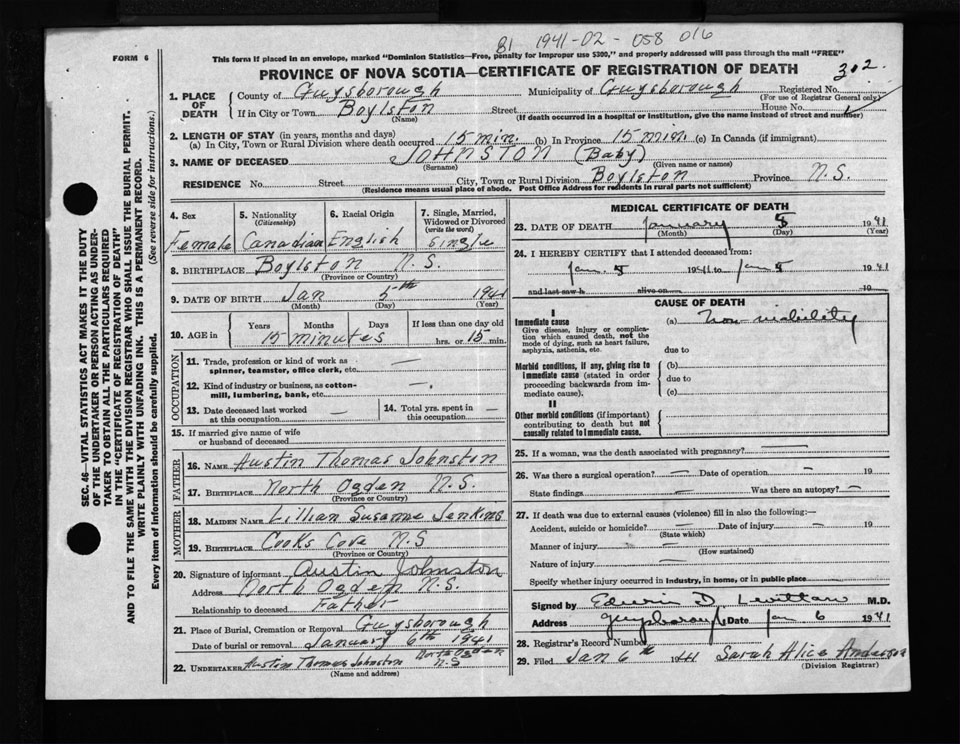 81 1941-02-058 016
FORM 6 This form if placed in an envelope, marked "Dominion Statistics—Free, penalty for improper use $300," and properly addressed will pass through the mail "FREE"
PROVINCE OF NOVA SCOTIA—CERTIFICATE OF REGISTRATION OF DEATH 302
1. PLACE OF DEATH County of Guysborough Municipality of Guysborough Registered No.
(For use of Registrar General only)
If in City or Town Boylston Street House No.
(Name) (If death occurred in a hospital or institution, give the name instead of street and number)
2. LENGTH OF STAY (in years, months and days)
(a) In City, Town or Rural Division where death occurred 15 min. (b) In Province 15 min. (c) In Canada (if immigrant)
3. NAME OF DECEASED JOHNSTON (Baby)
(Surname) (Given name or names)
RESIDENCE No. Street City, Town or Rural Division Boylston Province N.S.
(Residence means usual place of abode. Post Office Address for residents in rural parts not sufficient)
4. Sex Female
5. Nationality (Citizenship) Canadian
6. Racial Origin English
7. Single, Married, Widowed or Divorced (write the word) Single
8. BIRTHPLACE Boylston N.S.
(Province or Country)
9. DATE OF BIRTH Jan 5th 1941
(Month) (Day) (Year)
10. AGE in Years Months Days If less than one day old
15 minutes hrs. or 15 min.
OCCUPATION
11. Trade, profession or kind of work as spinner, teamster, office clerk, etc. —
12. Kind of industry or business, as cotton-mill, lumbering, bank, etc. —
13. Date deceased last worked at this occupation —
14. Total yrs. spent in this occupation —
15. If married give name of wife or husband of deceased
FATHER
16. NAME Austin Thomas Johnston
17. BIRTHPLACE North Ogden N.S.
(Province or Country)
MOTHER
18. MAIDEN NAME Lillian Susanne Jenkins
19. BIRTHPLACE Cooks Cove N.S
(Province or Country)
20. Signature of informant Austin Johnston
Address North Ogden N.S.
Relationship to deceased Father
21. Place of Burial, Cremation or Removal Guysborough
Date of burial or removal January 6th 1941
22. UNDERTAKER Austin Thomas Johnston North Ogden N.S
(Name and address)
MEDICAL CERTIFICATE OF DEATH
23. DATE OF DEATH January 5 1941
(Month) (Day) (Year)
24. I HEREBY CERTIFY that I attended deceased from:
Jan. 5 1941 to Jan 5 1941
and last saw h alive on 19
CAUSE OF DEATH
I
Immediate cause (a) Non-viability
Give disease, injury or complication which caused death, not the mode of dying, such as heart failure, asphyxia, asthenia, etc.
due to
Morbid conditions, if any, giving rise to immediate cause (stated in order proceeding backwards from immediate cause).
(b)
due to
(c)
II
Other morbid conditions (if important) contributing to death but not causally related to immediate cause.
25. If a woman, was the death associated with pregnancy? —
26. Was there a surgical operation? — Date of operation — 19
State findings — Was there an autopsy? —
27. If death was due to external causes (violence) fill in also the following:—
Accident, suicide or homicide? — Date of injury — 19
(State which)
Manner of injury —
(How sustained)
Nature of injury —
Specify whether injury occurred in industry, in home, or in public place
Signed by Edwin D. M.D.
Address Guysborough Date Jan 6 1941
28. Registrar's Record Number
29. Filed Jan 6th 1941 Sarah Alice Anderson
(Division Registrar)
SEC. 46—VITAL STATISTICS ACT MAKES IT THE DUTY
OF THE UNDERTAKER OR PERSON ACTING AS UNDER-
TAKER TO OBTAIN ALL THE PARTICULARS REQUIRED
IN THE "CERTIFICATE OF REGISTRATION OF DEATH"
AND TO FILE THE SAME WITH THE DIVISION REGISTRAR WHO SHALL ISSUE THE BURIAL PERMIT.
WRITE PLAINLY WITH UNFADING INK. THIS IS A PERMANENT RECORD.
Every item of information should be carefully supplied. (See reverse side for instructions.)